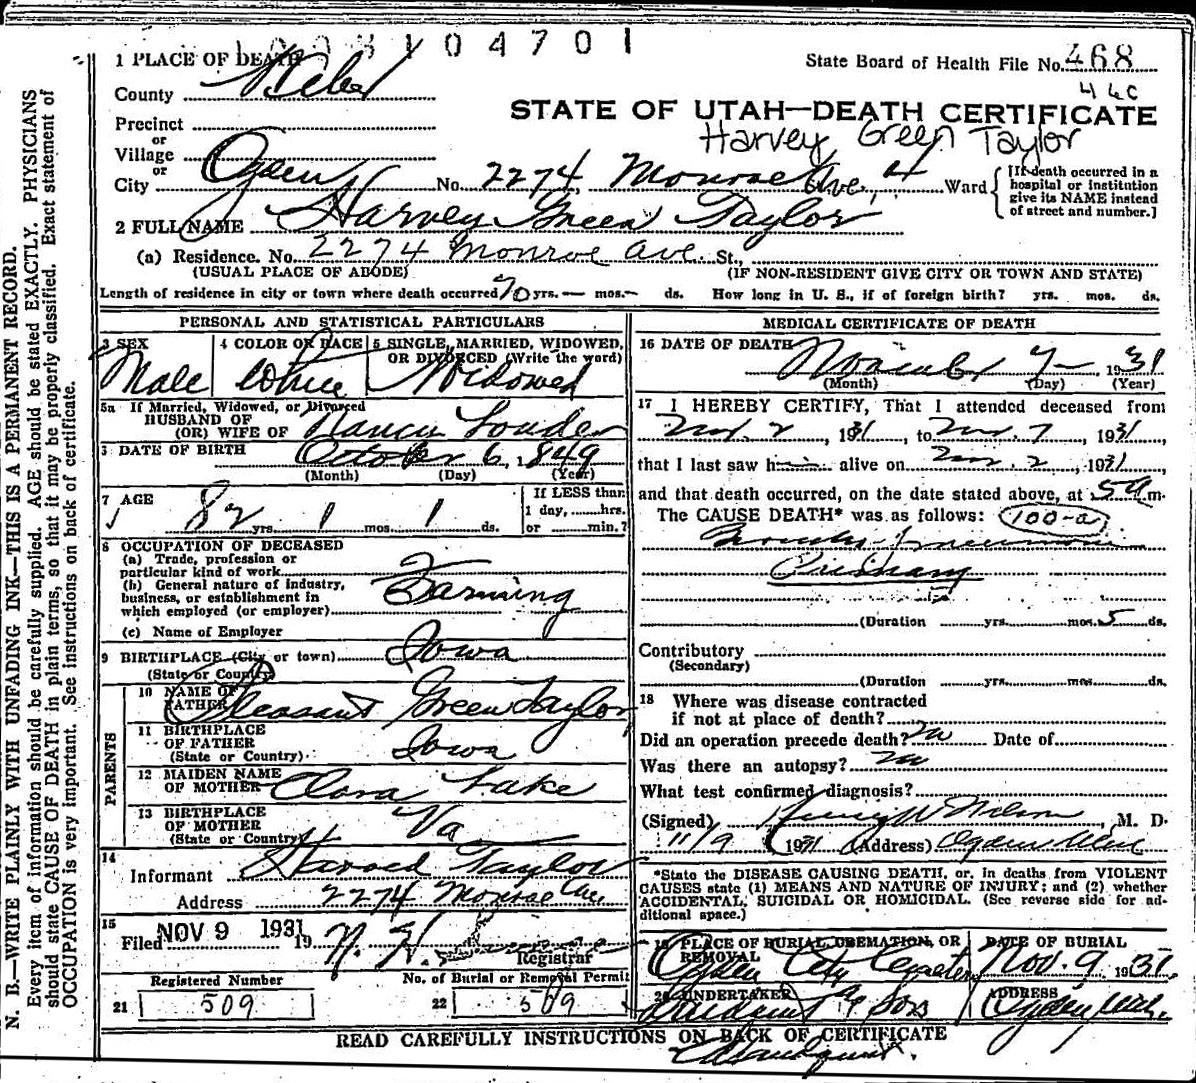 104701
1 PLACE OF DEATH
State Board of Health File No. 468
County Weber
44C
STATE OF UTAH—DEATH CERTIFICATE
Harvey Green Taylor
Precinct
or
Village
or
City Ogden No. 2274 Monroe Ave, 4 Ward
[If death occurred in a
hospital or institution
give its NAME instead
of street and number.]
2 FULL NAME Harvey Green Taylor
(a) Residence. No. 2274 Monroe Ave. St.,
(USUAL PLACE OF ABODE) (IF NON-RESIDENT GIVE CITY OR TOWN AND STATE)
Length of residence in city or town where death occurred 70 yrs. — mos. — ds. How long in U. S., if of foreign birth? yrs. mos. ds.
PERSONAL AND STATISTICAL PARTICULARS
3 SEX
Male
4 COLOR OR RACE
White
5 SINGLE, MARRIED, WIDOWED,
OR DIVORCED (Write the word)
Widowed
5a If Married, Widowed, or Divorced
HUSBAND OF
(OR) WIFE OF Nancy Louder
DATE OF BIRTH October 6, 1849
(Month) (Day) (Year)
7 AGE
82 yrs. 1 mos. 1 ds.
If LESS than
1 day, hrs.
or min.?
8 OCCUPATION OF DECEASED
(a) Trade, profession or
particular kind of work
(b) General nature of industry,
business, or establishment in
which employed (or employer) Farming
(c) Name of Employer
9 BIRTHPLACE (City or town) Iowa
(State or Country)
PARENTS
10 NAME OF
FATHER Pleasant Green Taylor
11 BIRTHPLACE
OF FATHER Iowa
(State or Country)
12 MAIDEN NAME
OF MOTHER Clara Lake
13 BIRTHPLACE
OF MOTHER Va
(State or Country)
14
Informant Taylor
Address 2274 Monroe Ave
15
Filed NOV 9 1931 19 N. H.
Registrar
Registered Number
21 509
No. of Burial or Removal Permit
22 509
MEDICAL CERTIFICATE OF DEATH
16 DATE OF DEATH
November 7— 1931
(Month) (Day) (Year)
17 I HEREBY CERTIFY, That I attended deceased from
Nov. 2, 1931, to Nov. 7 1931,
that I last saw him alive on Nov. 2, 1931,
and that death occurred, on the date stated above, at 5 a m.
The CAUSE DEATH* was as follows: 100-a
Pneumonia
Primary
(Duration yrs. mos. 5 ds.
Contributory
(Secondary)
(Duration yrs. mos. ds.
18 Where was disease contracted
if not at place of death?
Did an operation precede death? no Date of
Was there an autopsy? no
What test confirmed diagnosis?
(Signed) W Nelson, M. D.
11/9 1931 (Address) Ogden Utah
*State the DISEASE CAUSING DEATH, or, in deaths from VIOLENT
CAUSES state (1) MEANS AND NATURE OF INJURY; and (2) whether
ACCIDENTAL, SUICIDAL OR HOMICIDAL. (See reverse side for ad-
ditional space.)
19 PLACE OF BURIAL, CREMATION, OR
REMOVAL
Ogden City Cemetery
DATE OF BURIAL
Nov. 9 1931.
20 UNDERTAKER
& Sons
ADDRESS
Ogden Utah.
READ CAREFULLY INSTRUCTIONS ON BACK OF CERTIFICATE
N. B.—WRITE PLAINLY WITH UNFADING INK—THIS IS A PERMANENT RECORD.
Every item of information should be carefully supplied. AGE should be stated EXACTLY. PHYSICIANS
should state CAUSE OF DEATH in plain terms, so that it may be properly classified. Exact statement of
OCCUPATION is very important. See instructions on back of certificate.